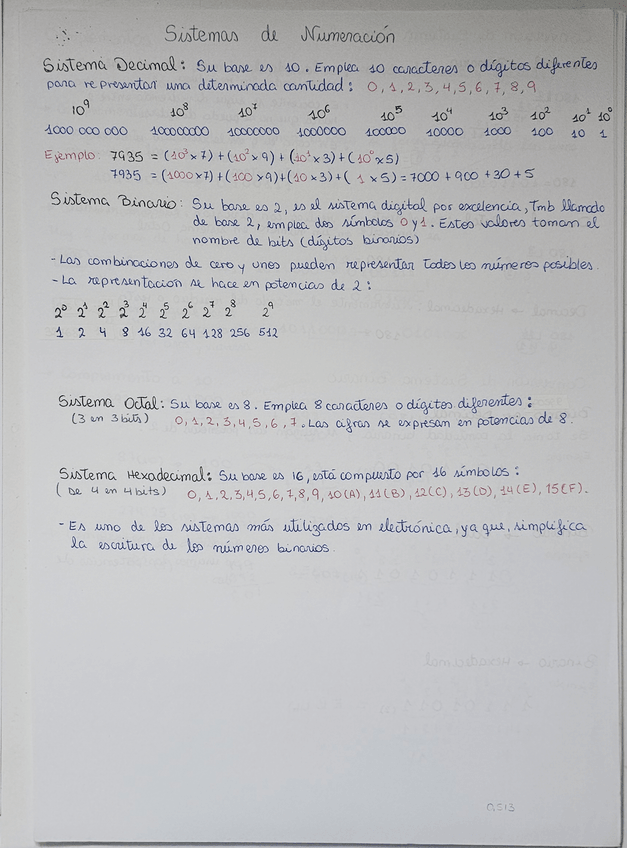 Sistemas de Numeración
Sistema Decimal: Su base es 10. Emplea 10 caracteres o dígitos diferentes
para representar una diterminada cantidad: 0, 1, 2, 3, 4, 5, 6, 7, 8, 9
10⁹ 10⁸ 10⁷ 10⁶ 10⁵ 10⁴ 10³ 10² 10¹ 10⁰
1000 000 000 100000000 10000000 1000000 100000 10000 1000 100 10 1
Ejemplo: 7935 = (10³x7) + (10²x9) + (10¹x3) + (10⁰x5)
7935 = (1000x7) + (100x9) + (10x3) + (1x5) = 7000 + 900 + 30 + 5
Sistema Binario: Su base es 2, es el sistema digital por excelencia, Tmb llamado
de base 2, emplea dos símbolos 0 y 1. Estos valores toman el
nombre de bits (dígitos binarios)
- Las combinaciones de cero y unos pueden representar todos los números posibles.
- La representación se hace en potencias de 2:
2⁰ 2¹ 2² 2³ 2⁴ 2⁵ 2⁶ 2⁷ 2⁸ 2⁹
1 2 4 8 16 32 64 128 256 512
Sistema Octal: Su base es 8. Emplea 8 caracteres o dígitos diferentes:
(3 en 3 bits) 0, 1, 2, 3, 4, 5, 6, 7. Las cifras se expresan en potencias de 8.
Sistema Hexadecimal: Su base es 16, está compuesto por 16 símbolos:
(De 4 en 4 bits) 0, 1, 2, 3, 4, 5, 6, 7, 8, 9, 10(A), 11(B), 12(C), 13(D), 14(E), 15(F).
- Es uno de los sistemas más utilizados en electrónica, ya que, simplifica
la escritura de los números binarios.